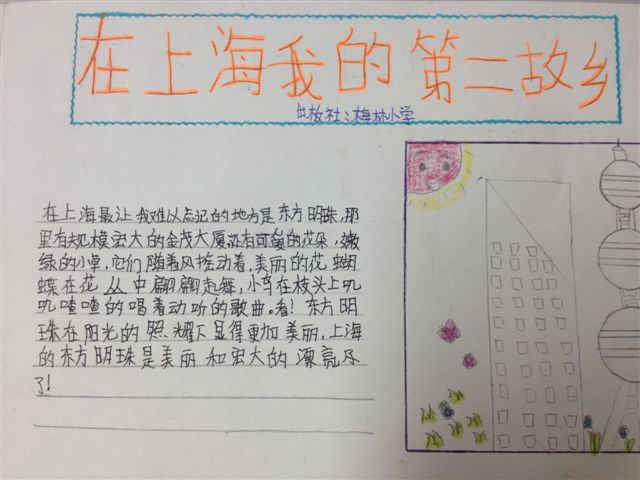 在上海我的第二故乡
出板社:梅林小学
在上海最让我难以忘记的地方是东方明珠,那
里有规模宏大的金茂大厦还有可爱的花朵,嫩
绿的小草,它们随着风摇动着,美丽的花蝴
蝶在花丛中翩翩起舞,小鸟在枝头上叽
叽喳喳的唱着动听的歌曲。看!东方明
珠在阳光的照耀下显得更加美丽,上海
的东方明珠是美丽和宏大的漂亮尽
了!